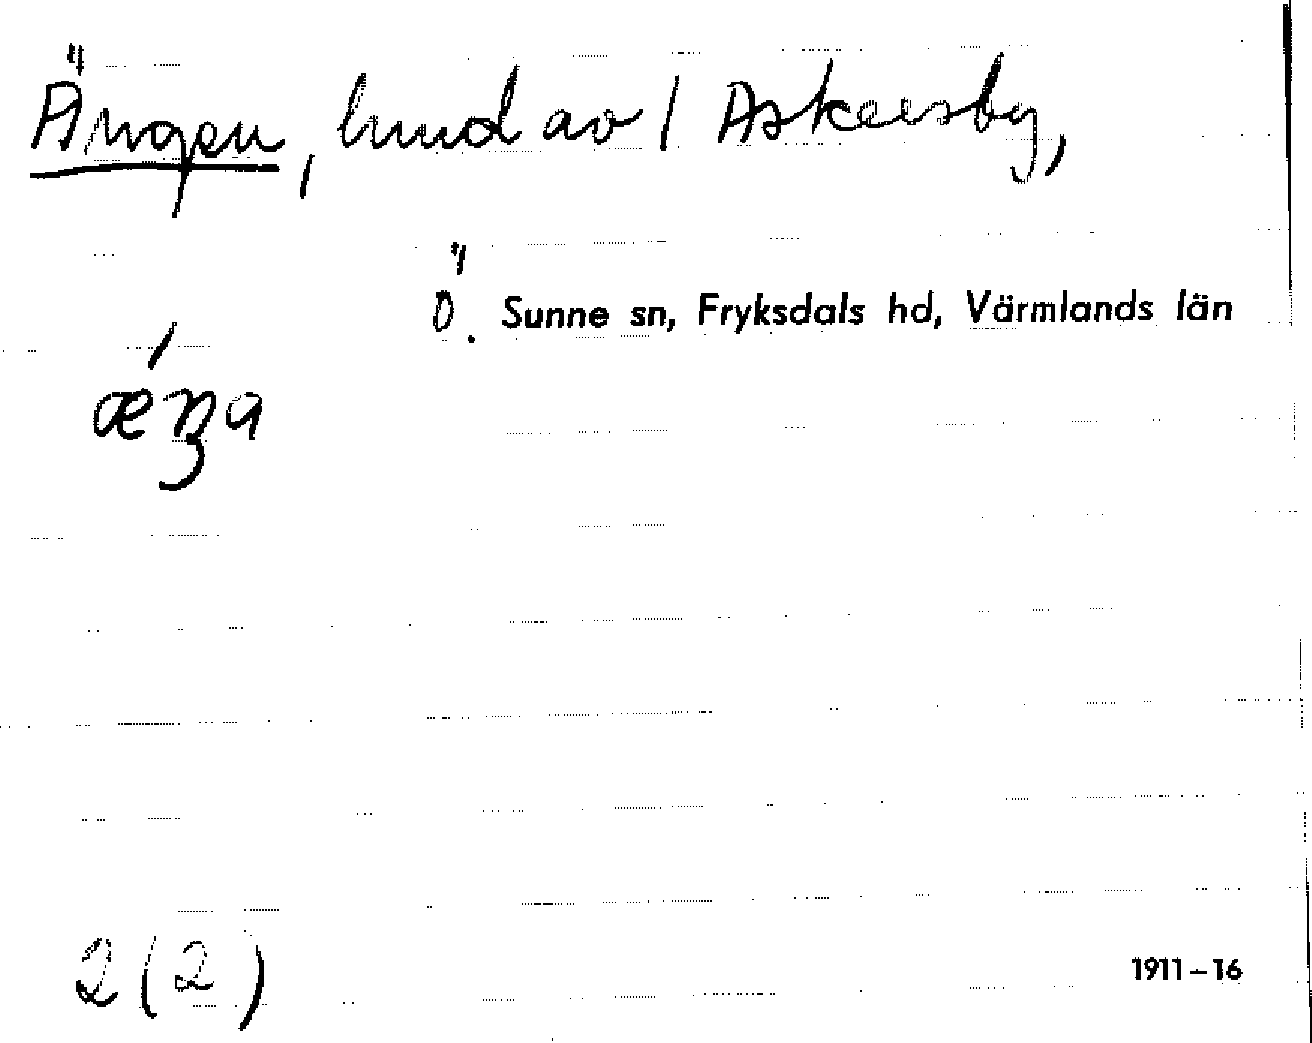 Ängen, hmd av 1 Askersby,
Ö. Sunne sn, Fryksdals hd, Värmlands län
æŋa
2 (2)
1911-16